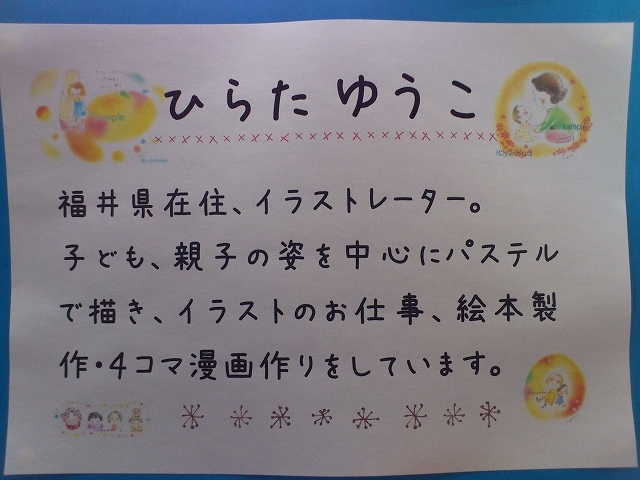 ひらた ゆうこ
福井県在住、イラストレーター。
子ども、親子の姿を中心にパステル
で描き、イラストのお仕事、絵本製
作・4コマ漫画作りをしています。
sample
sample